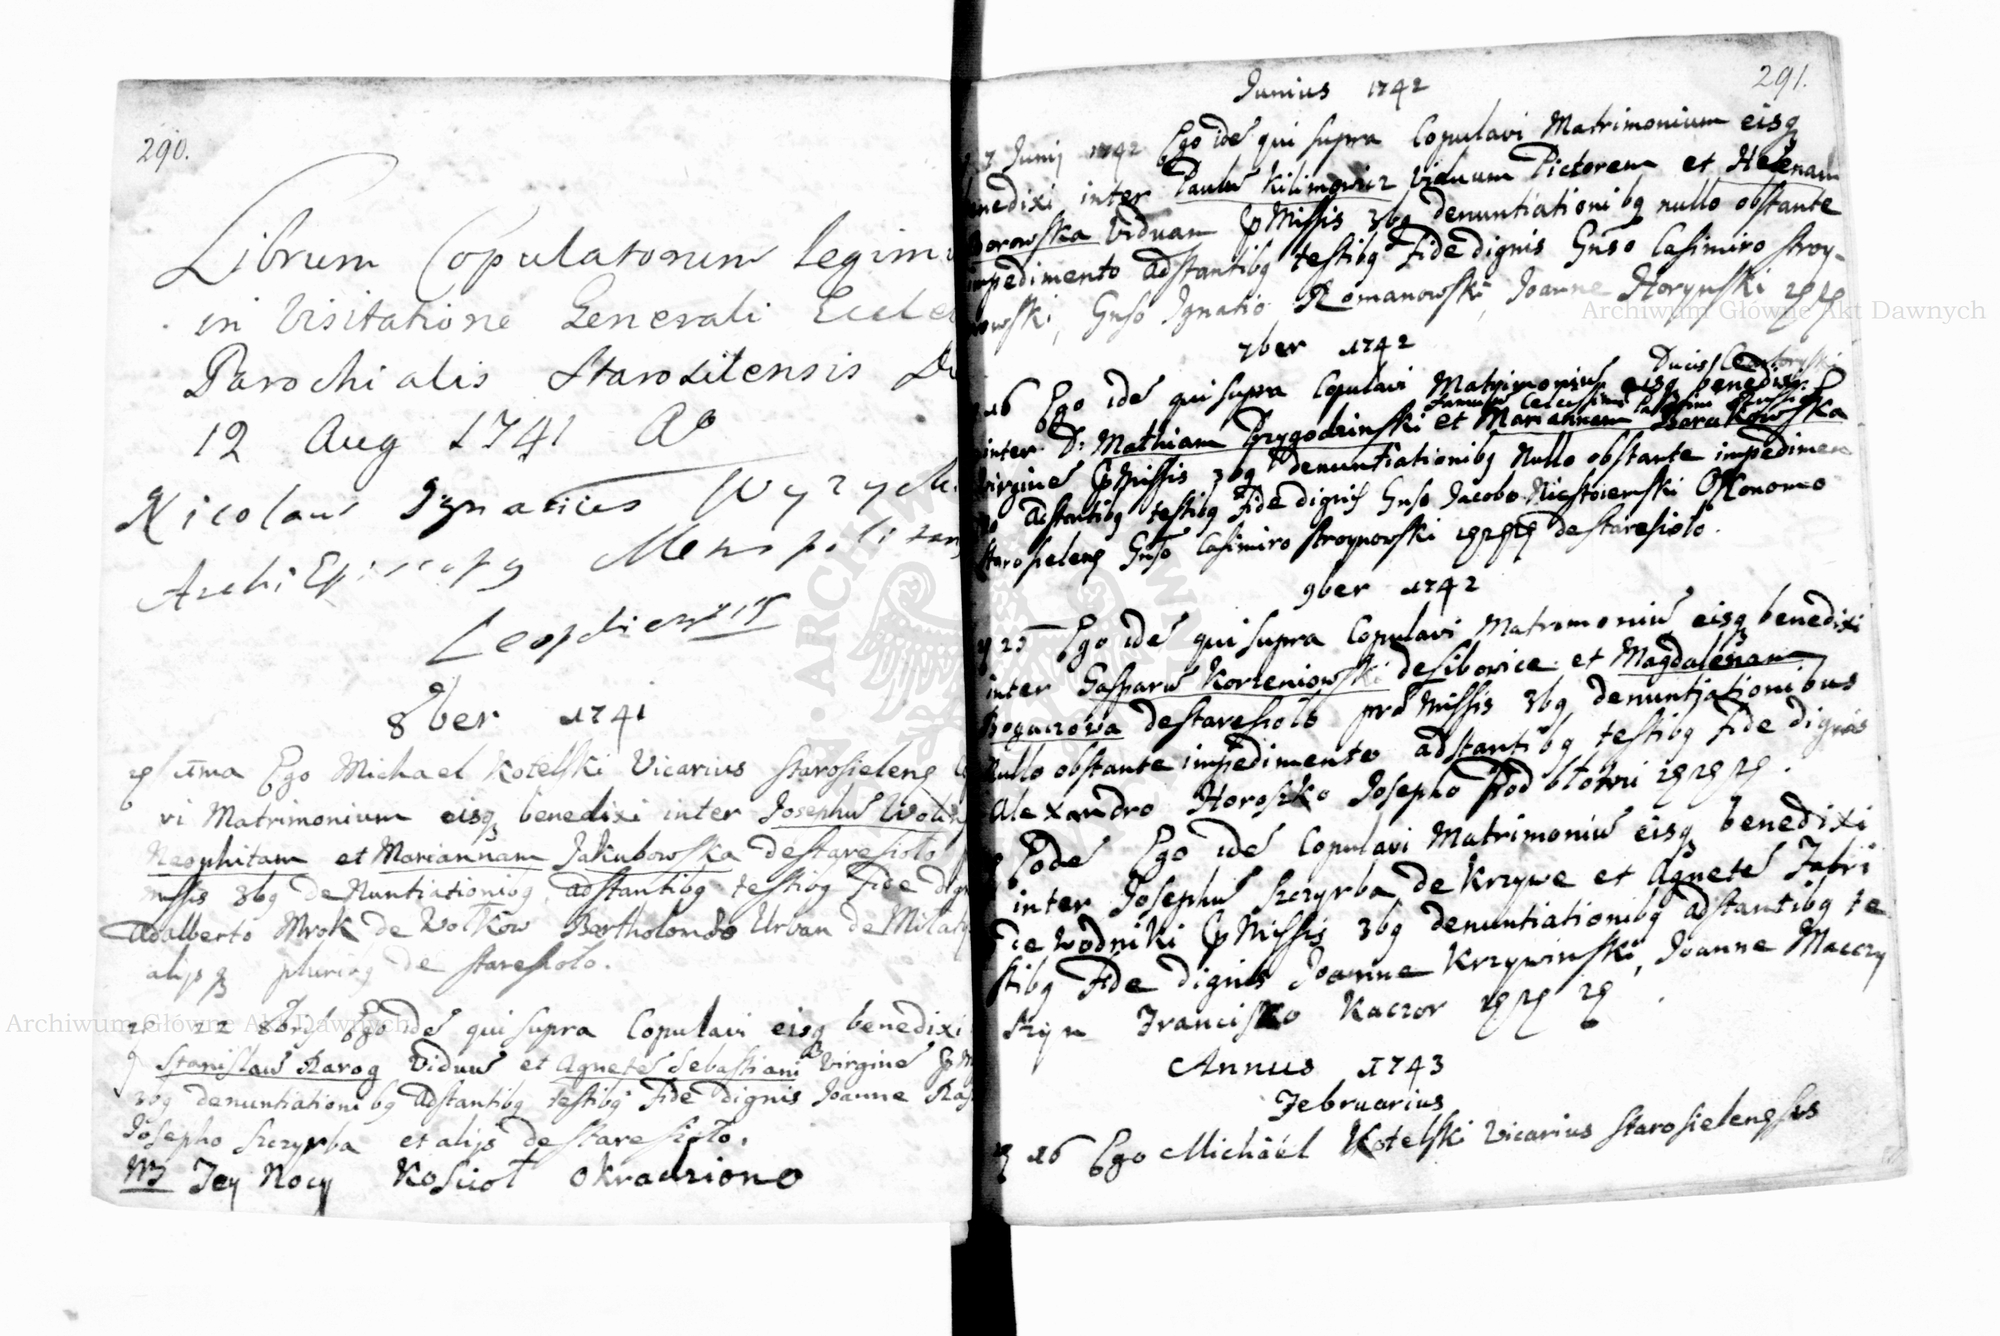 290.
Librum Copulatorum legim
in Visitatione Generali Eccle
Parochialis Starosielensis D
12 Aug 1741 Ao
Nicolaus Ignatius Wyzyck
ArchiEpiscopq Metropolitan
Leopoliensis
8ber 1741
ima Ego Michael Kotelski Vicarius Starosielens
vi Matrimonium eisq benedixi inter Josephū
Neophitam et Mariannam Jakubowska de staresioło
missis 3bq deNuntiationibq adstantibq testibq Fide dig
Adalberto Mrok de Wołkow Bartholomeo Urban de Milat
alijsq pluribq de staresioło.
22 8bris Ego idē qui supra Copulavi eisq benedixi
Stanislaū Rarog Viduū et Agnetē Sebastiani Virginē
3bq denuntiationibq adstantibq testibq Fide dignis Joanne
Josepho Szczyrba et alijs de staresioło.
NB Tey Nocy Koscioł okradziono
291.
Junius 1742
7 Junij 1742 Ego idē qui supra Copulavi Matrimonium eisq
benedixi inter Paulū Kilimowicz Viduum Pictorem et Helenam
Borowska Viduam pMissis 3bq denuntiationibq nullo obstante
impedimento adstantibq testibq Fide dignis Gnso Casimiro Stroy-
nowski, Gnso Ignatio Romanowski, Joanne Horynski
7ber 1742
Ducis
16 Ego idē qui supra Copulavi Matrimoniū eisq benedixi
Famulū Celsissimi
inter D: Mathiam Przygodzinski et Mariannam
Virginē pMissis 3bq denuntiationibq Nullo obstante impedimen
to adstantibq testibq Fide dignis Gnso Jacobo Oekonomo
Starosielens Gnso Casimiro Stroynowski de staresioło.
9ber 1742
25 Ego idē qui supra Copulavi Matrimoniū eisq benedixi
inter Gasparū Korzeniowski de Sibowice et Magdalenam
Bogaczowa de staresioło prae Missis 3bq denuntiationibus
Nullo obstante impedimento adstantibq testibq Fide dignis
Alexandro Horoszko Josepho
Eodē Ego idē Copulavi Matrimoniū eisq benedixi
inter Josephū Szczyrba de Krzywe et Agnetē Fabri
de Wodniki pMissis 3bq denuntiationibq adstantibq te
stibq Fide dignis Joanne Krzywinski, Joanne Maczy
szyn Francisko Kaczor
Annus 1743
Februarius
16 Ego Michäel Kotelski Vicarius Starosielensis
Archiwum Główne Akt Dawnych
Archiwum Główne Akt Dawnych